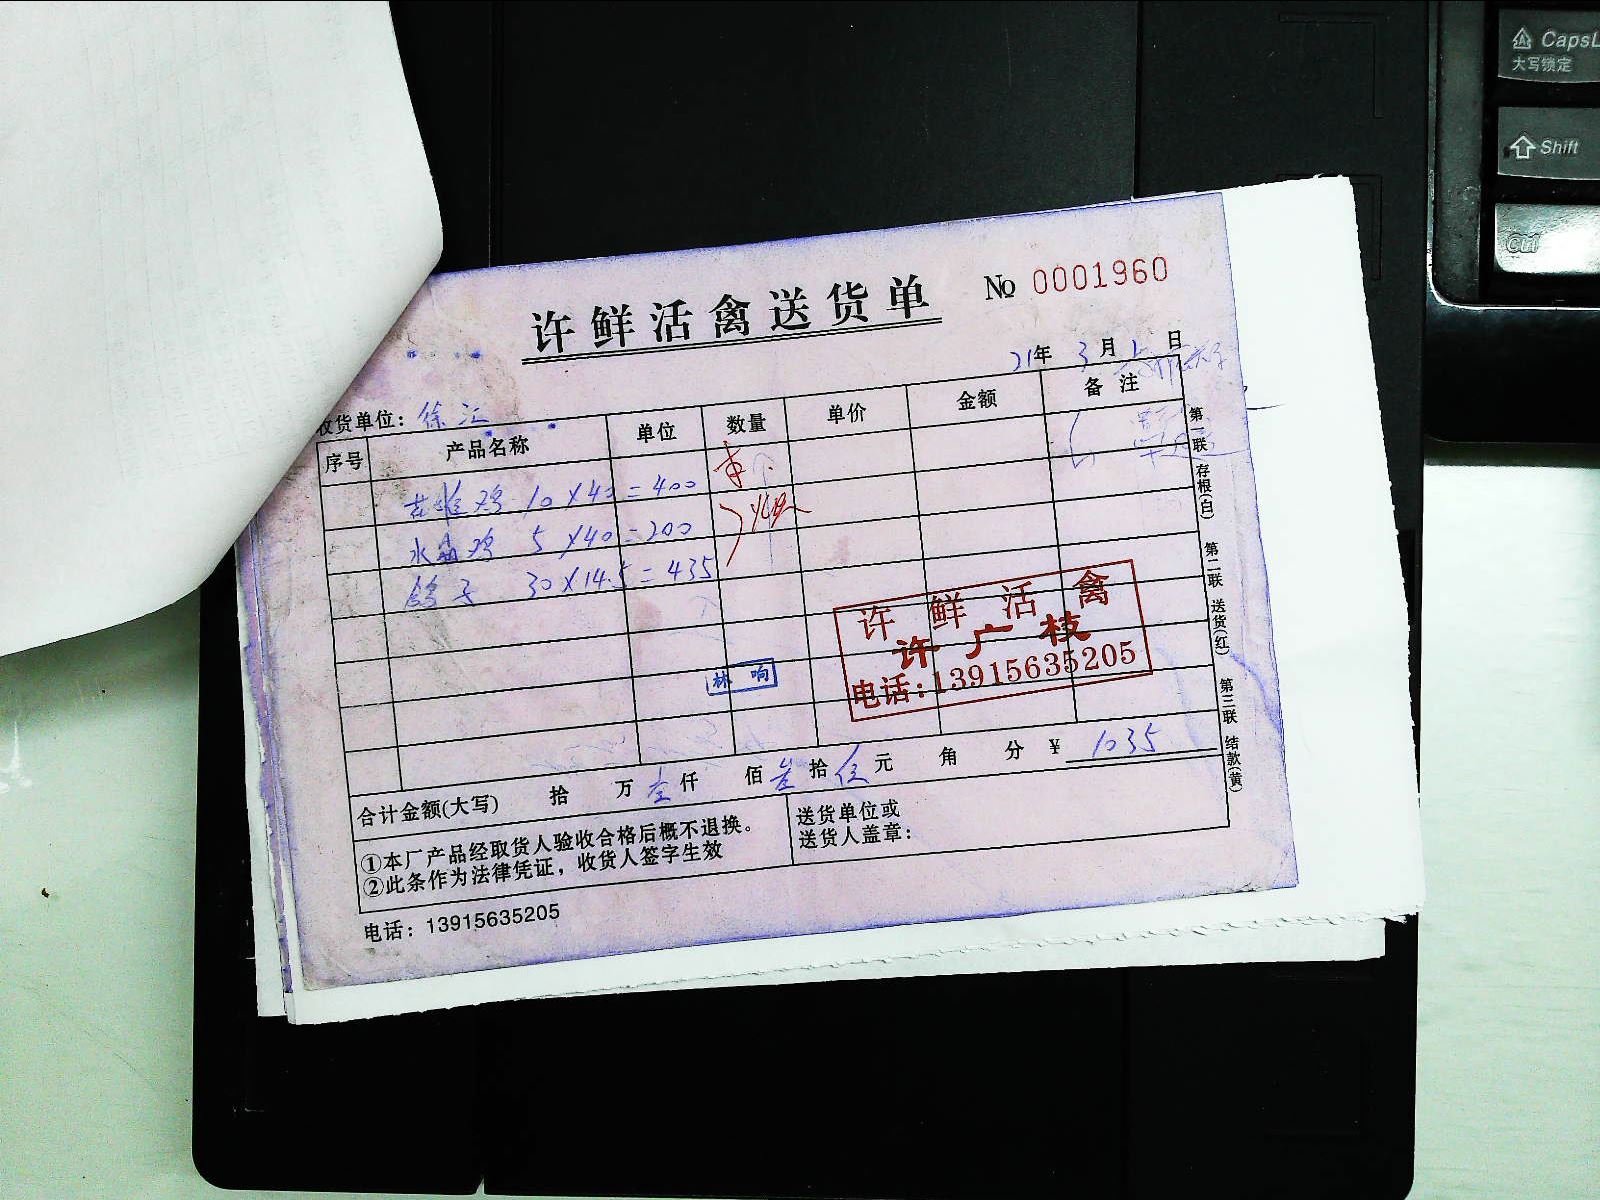 许鲜活禽送货单
№ 0001960
21年 3月 日
收货单位: 徐汇
序号 产品名称 单位 数量 单价 金额 备注
花雄鸡 10×40=400
水鸡 5×40=200
鸽子 30×14.5=435
许鲜活禽
许广枝
电话:13915635205
林响
合计金额(大写) 拾 万 壹仟 佰 叁拾 伍元 角 分 ¥ 1035
①本厂产品经取货人验收合格后概不退换。
②此条作为法律凭证，收货人签字生效
送货单位或
送货人盖章:
电话: 13915635205
第一联 存根(白) 第二联 送货(红) 第三联 结款(黄)
CapsL
大写锁定
Shift
Ctrl